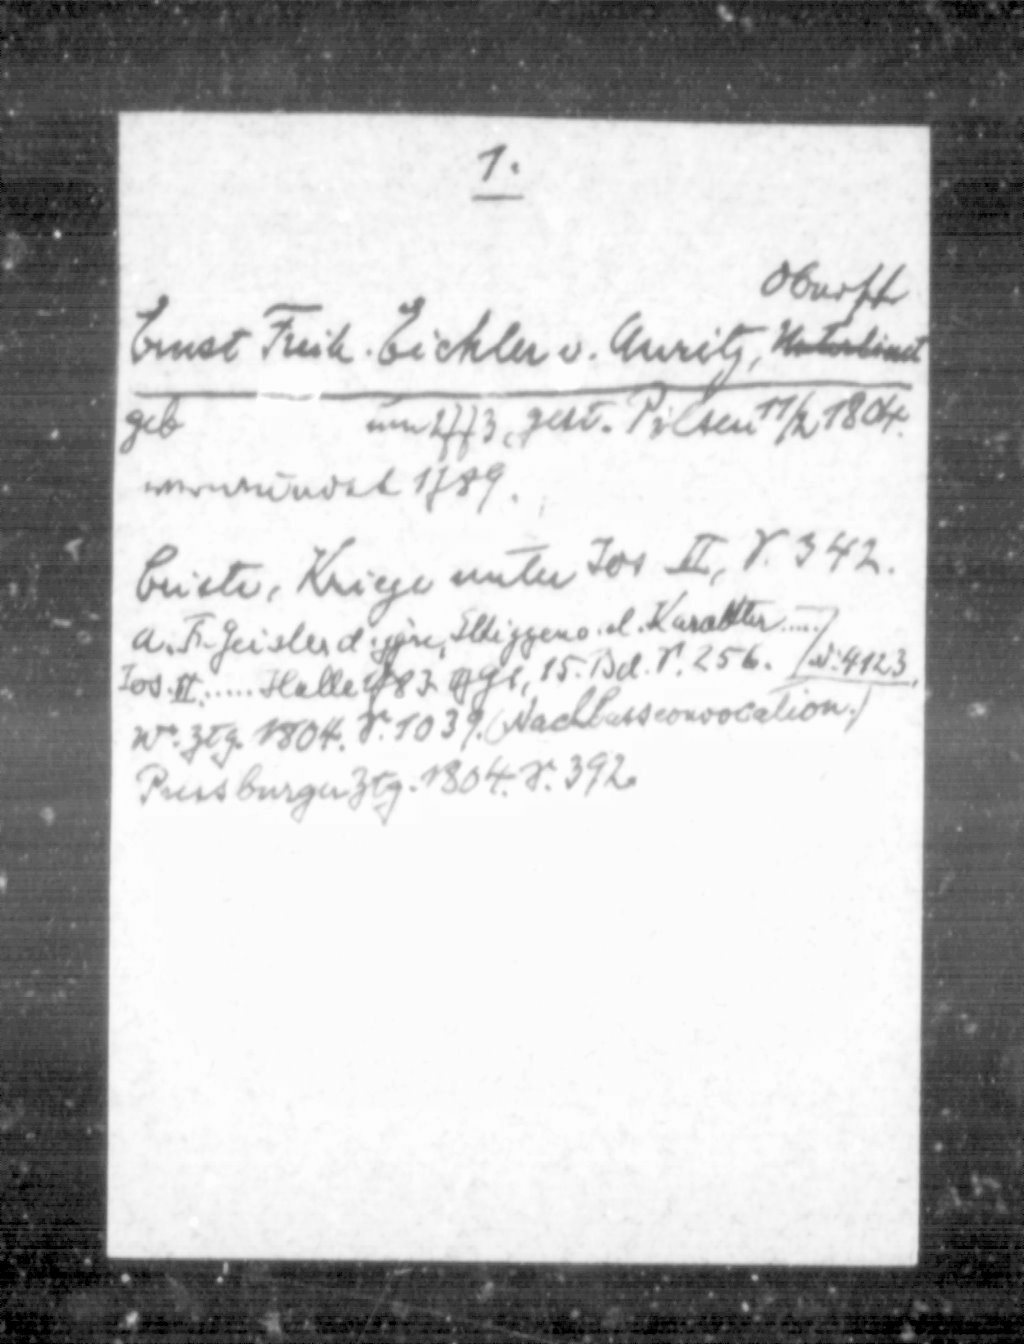 1.
Oberst
Ernst Freih. Eichler v. Auritz, Unterlieut
geb um 1773, gest. Pilsen 11/2 1804.
verwundet 1789.
Criste, Kriege unter Jos II, S. 342.
A. F. Geisler d. jgre, Skizzen o. d. Karakter .....
Jos. II. ..... Halle 1783 ff, 15. Bd. S. 256. N: 4123,
Wr. Ztg. 1804. S. 1039. (Nachlassconvocation.)
Pressburger Ztg. 1804. S. 392.